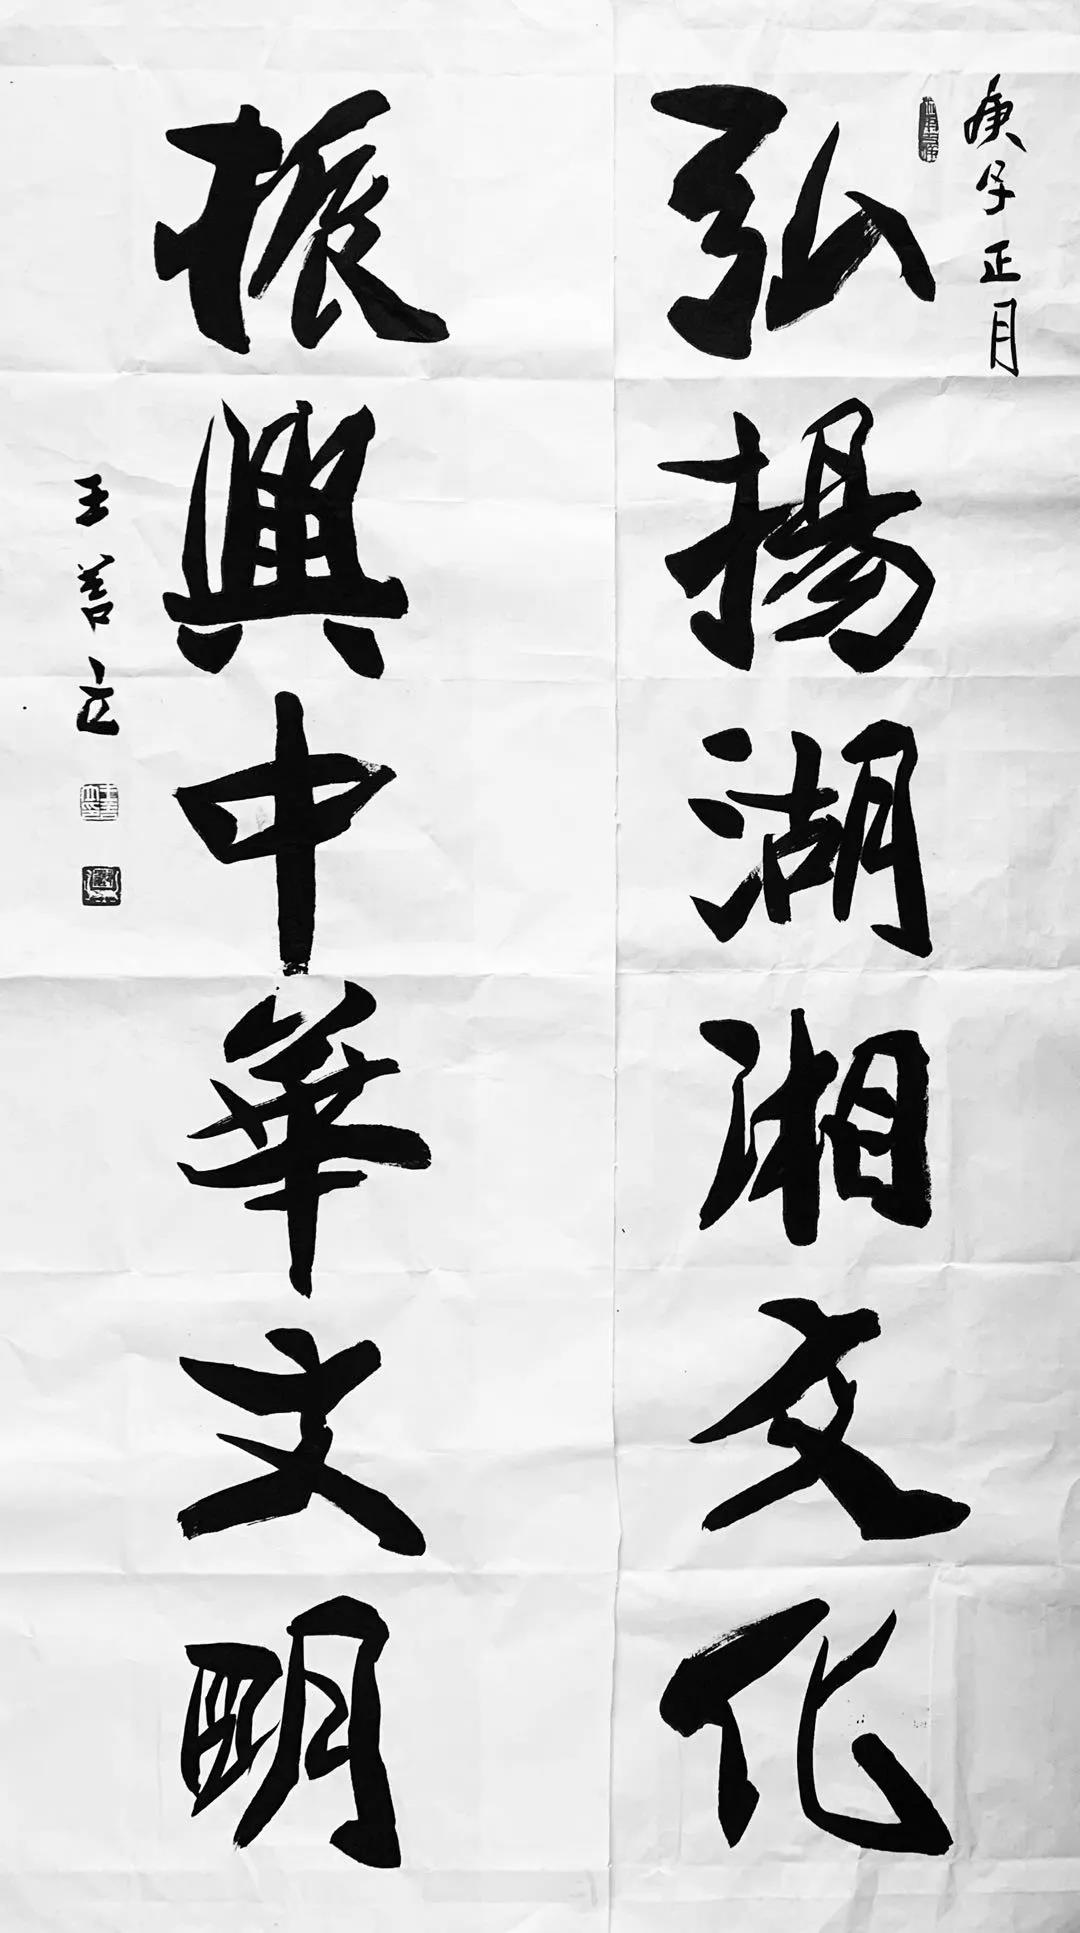 庚子正月
弘揚湖湘文化
振興中華文明
王善立